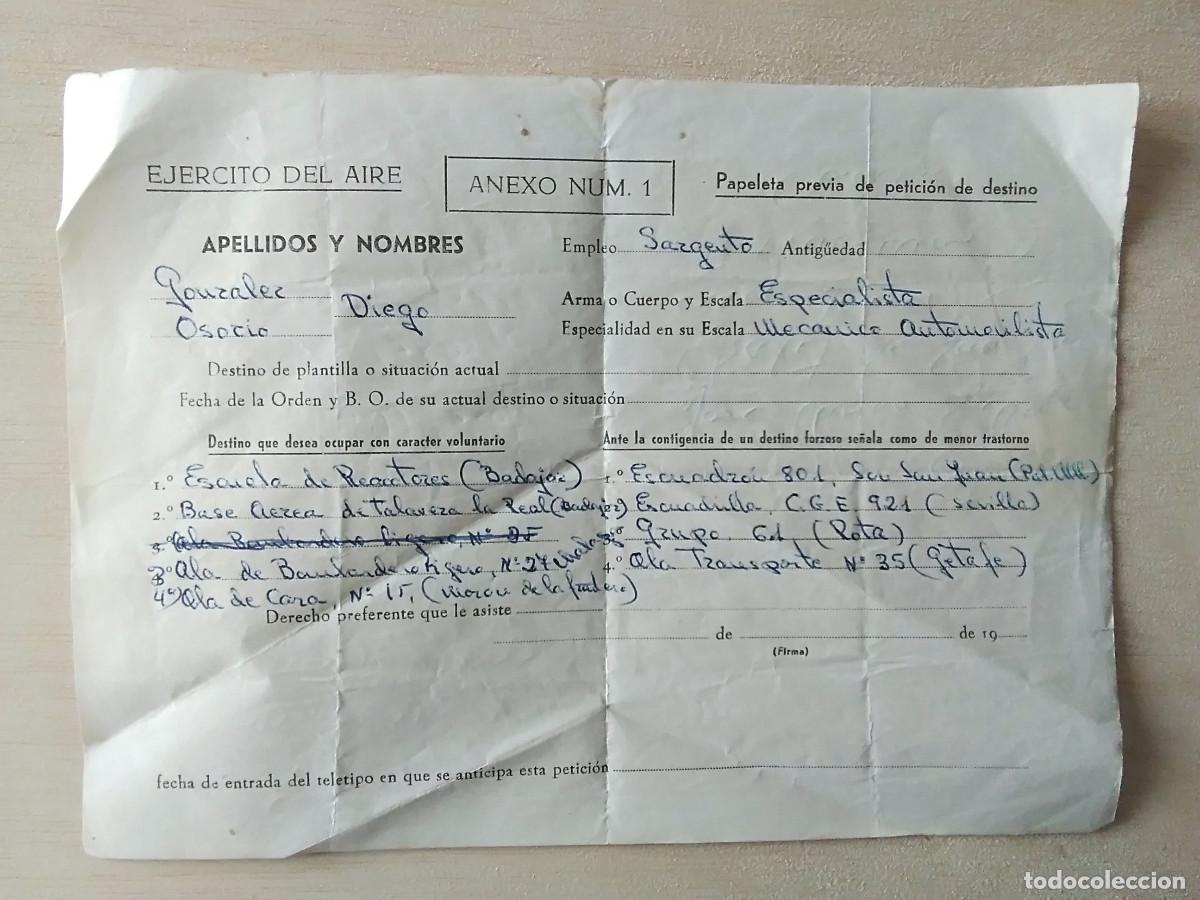 EJERCITO DEL AIRE
ANEXO NUM. 1
Papeleta previa de petición de destino
APELLIDOS Y NOMBRES
Empleo Sargento Antigüedad
Gonzalez
Diego
Osorio
Arma o Cuerpo y Escala Especialista
Especialidad en su Escala Mecanico Automovilista
Destino de plantilla o situación actual
Fecha de la Orden y B. O. de su actual destino o situación
Destino que desea ocupar con caracter voluntario
Ante la contigencia de un destino forzoso señala como de menor trastorno
1.º Escuela de Reactores (Badajoz)
1.º Escuadrón 801, Son San Juan
2.º Base Aerea de Talavera la Real (Badajoz)
Escuadrilla, C.G.E. 921 (Sevilla)
3.º Ala Bombardero ligero, Nº
3º Grupo, 61, (Rota)
3º Ala de Bombardero ligero, Nº 27
4.º Ala Transporte Nº 35 (Getafe)
4º Ala de Caza, Nº 15, (Moron de la
Derecho preferente que le asiste
de de 19
(Firma)
fecha de entrada del teletipo en que se anticipa esta petición
todocoleccion